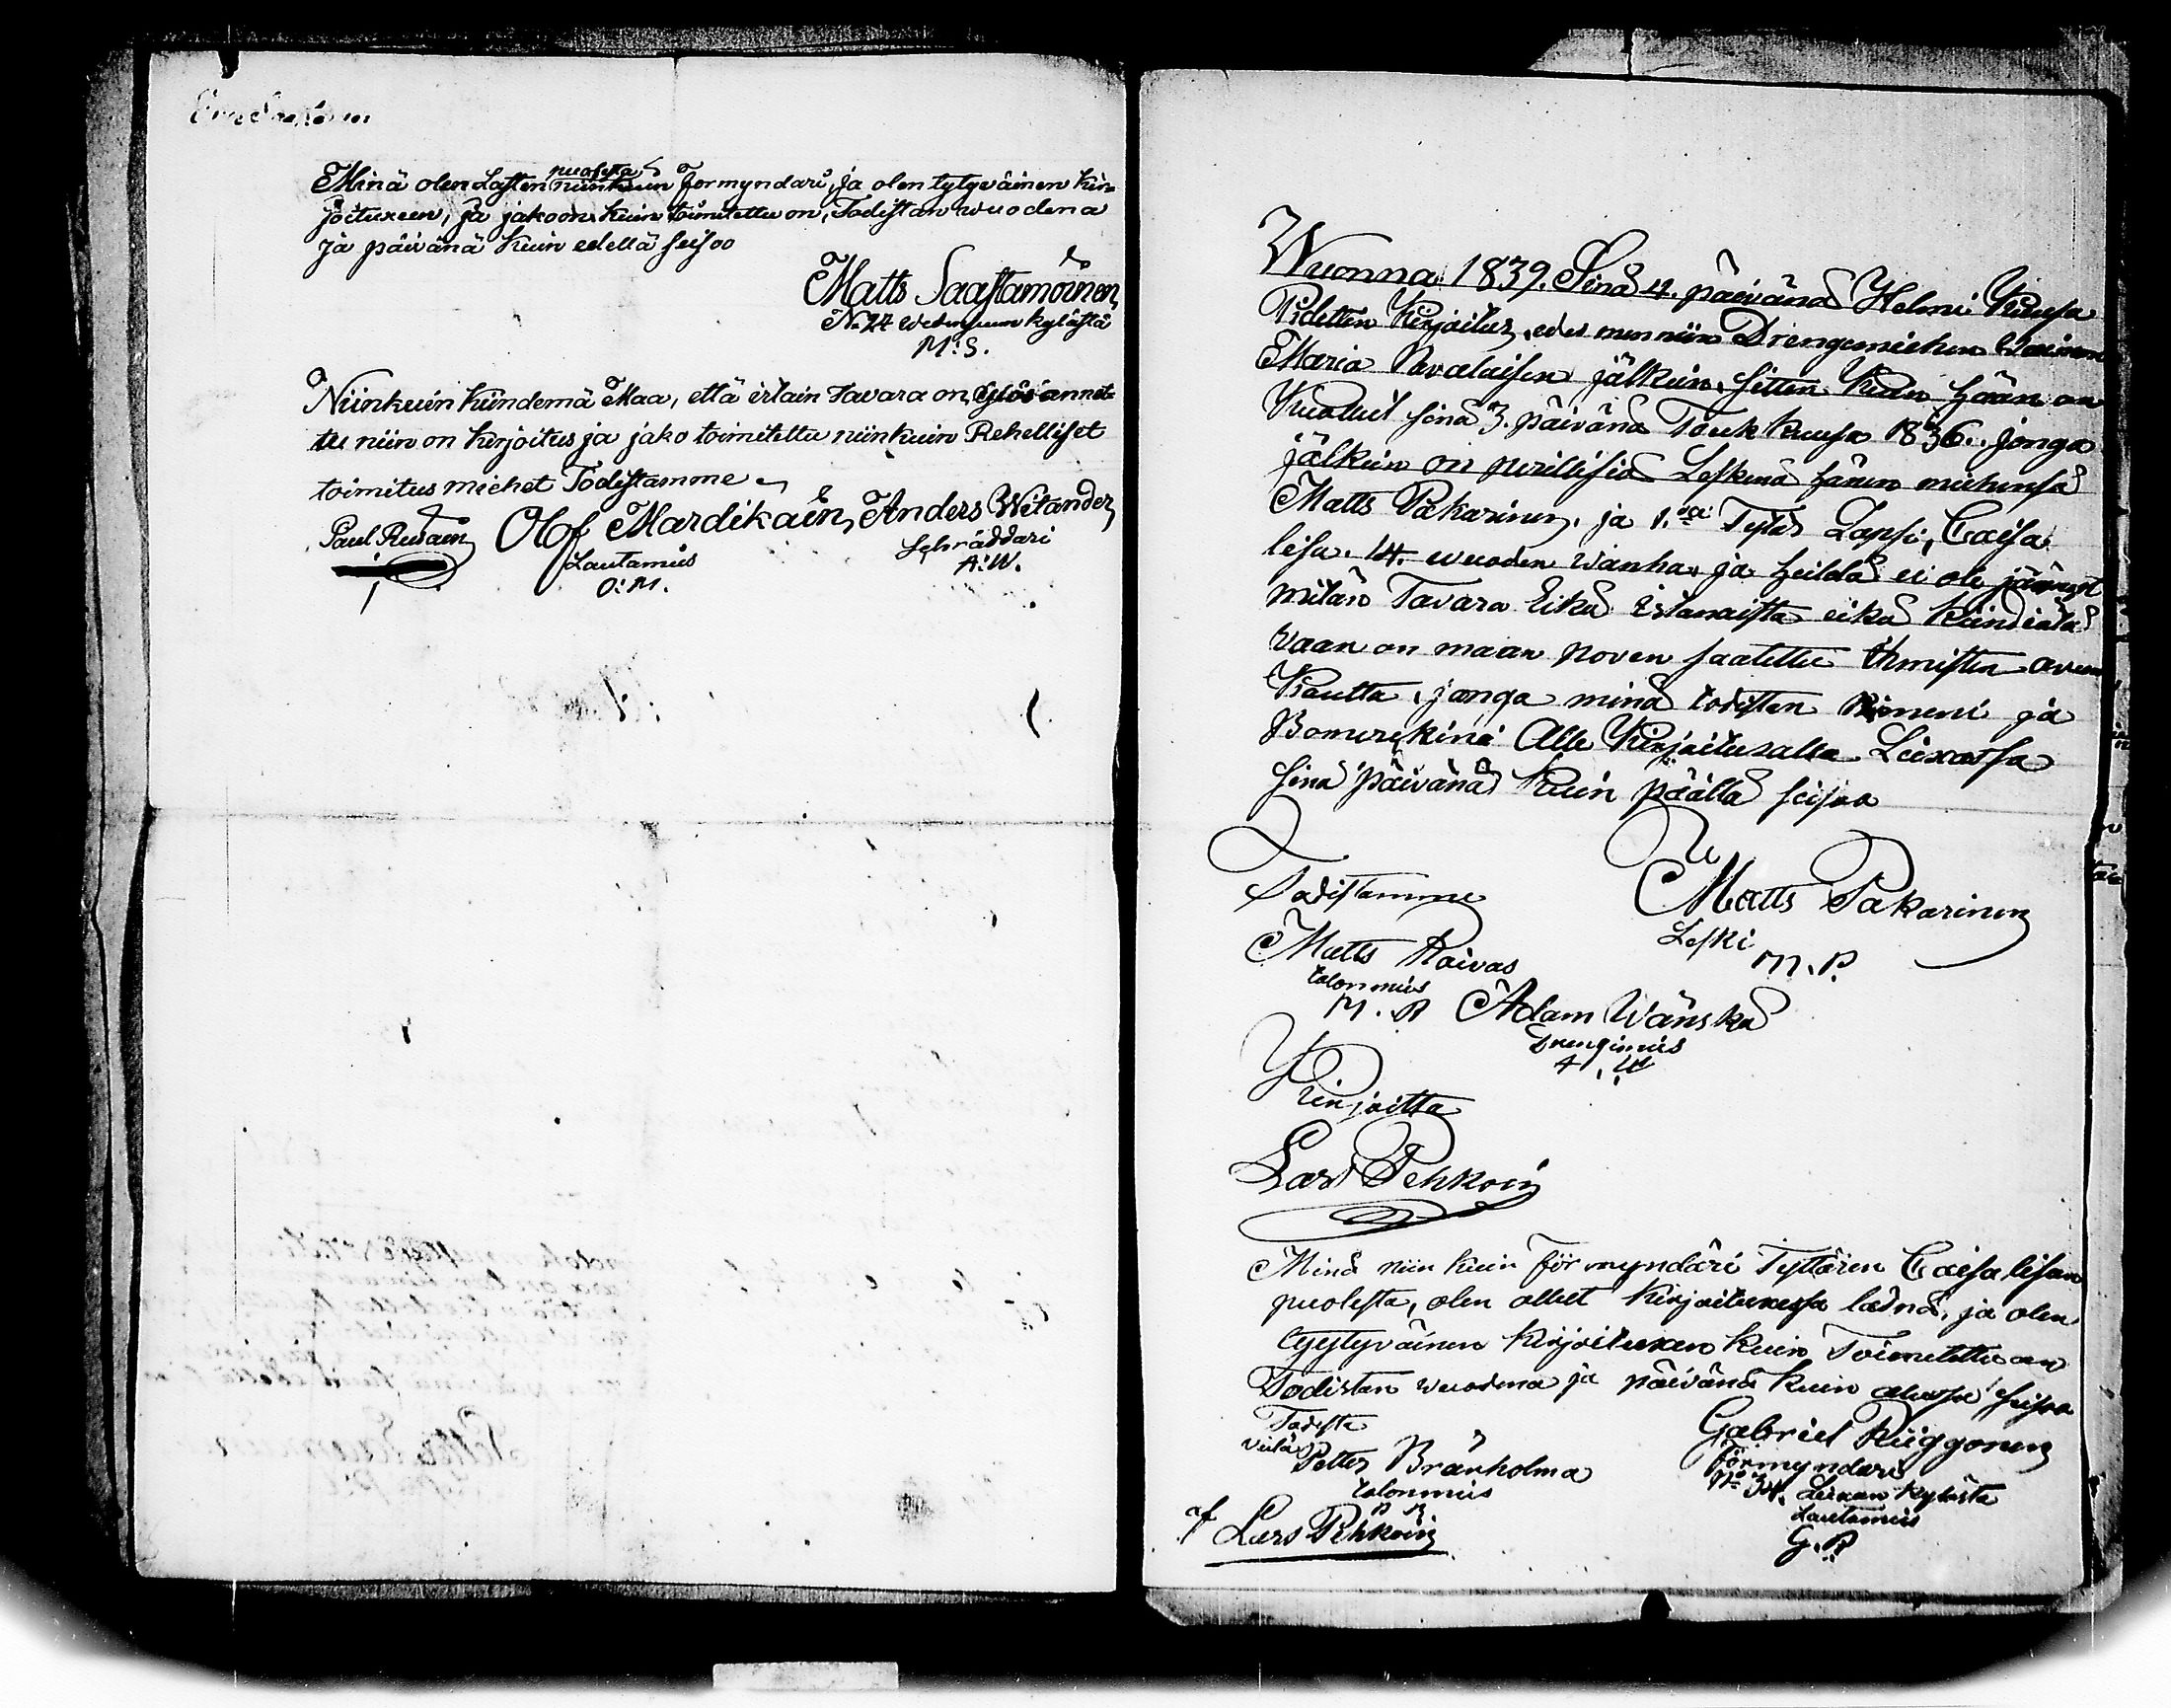 Minä olen Lasten puolesta niinkuin formyndari, ja olen tytyväinen kir-
joituxeen, ja jakoon kuin toimitettu on, Todistan wuodena
ja päivänä kuin edellä seisoo
Matts Saastamoinen
N:24 kylästä
M:S.
Niinkuin kiindemä Maa, että irtain tavara on, ylös annet-
tu niin on kirjoitus ja jako toimitettu niinkuin Rehelliset
toimitus miehet Todistamme
Paul Olof Mardikain, Anders Witander
Lautamies
Schräddari
O:M.
A:W.
Wuonna 1839. Sinä 4. päivänä Helmi Kuusa
Pidetten Kirjoitus, edes mennin Drengemiehen Waimon
Maria Pavalaisen jälkein, sitten kuin hään on
Kuollut sinä 3. päivänä Toukkuusa 1836. jonga
jälkein on perillisiä Leskenä hänen miehensä
Matts Pakarinen, ja 1. Tytär Lapsi, Caisa
lisa. 14. wuoden wanha, ja heildä ei ole jäänyt
mitän Tavara Eikä Irtanaista eikä kiindiätä
vaan on maan poven saatettu Ihmisten avun
Kautta, jonga minä todistan Nimeni ja
Bomerkini Alle Kirjoituxalla Leixassa
sinä päivänä kuin päällä seisoo
Todistamme
Matts Pakarinen
Leski
M.P.
Matts Raivas
tolonmies
M.R Adam Wänskä
Drengimies
A.W
Kirjoitta
Lars Pehkoin
Minä niin kuin förmyndäri Tyttären Caisa lisan
puolesta, olen ollut kirjoituxessa läsnä, ja olen
tytyväinen kirjoituxen kuin Toimitettu on
Todistan wuodena ja päivänä kuin alussa seisoo
Todista
vielä
Petter Bränholma
tolonmies
P B
af Lars Pehkoin
Gabriel Piiggonen
förmyndäri
No 34. Leixan kylästä
Lautamies
G.P.